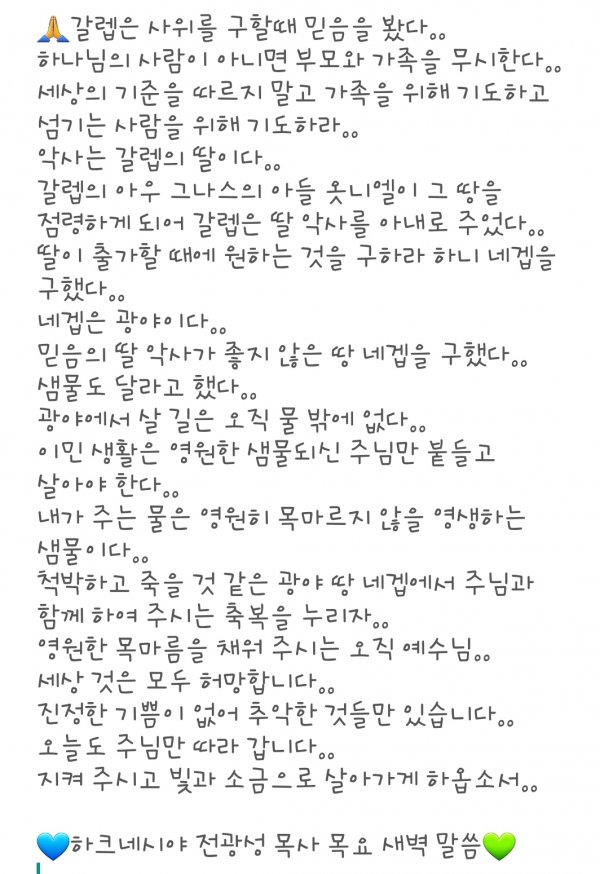 🙏갈렙은 사위를 구할때 믿음을 봤다。。
하나님의 사람이 아니면 부모와 가족을 무시한다。。
세상의 기준을 따르지 말고 가족을 위해 기도하고
섬기는 사람을 위해 기도하라。。
악사는 갈렙의 딸이다。。
갈렙의 아우 그나스의 아들 옷니엘이 그 땅을
점령하게 되어 갈렙은 딸 악사를 아내로 주었다。。
딸이 출가할 때에 원하는 것을 구하라 하니 네겝을
구했다。。
네겝은 광야이다。。
믿음의 딸 악사가 좋지 않은 땅 네겝을 구했다。。
샘물도 달라고 했다。。
광야에서 살 길은 오직 물 밖에 없다。。
이민 생활은 영원한 샘물되신 주님만 붙들고
살아야 한다。。
내가 주는 물은 영원히 목마르지 않을 영생하는
샘물이다。。
척박하고 죽을 것 같은 광야 땅 네겝에서 주님과
함께 하여 주시는 축복을 누리자。。
영원한 목마름을 채워 주시는 오직 예수님。。
세상 것은 모두 허망합니다。。
진정한 기쁨이 없어 추악한 것들만 있습니다。。
오늘도 주님만 따라 갑니다。。
지켜 주시고 빛과 소금으로 살아가게 하옵소서。。
💙하크네시야 전광성 목사 목요 새벽 말씀💚